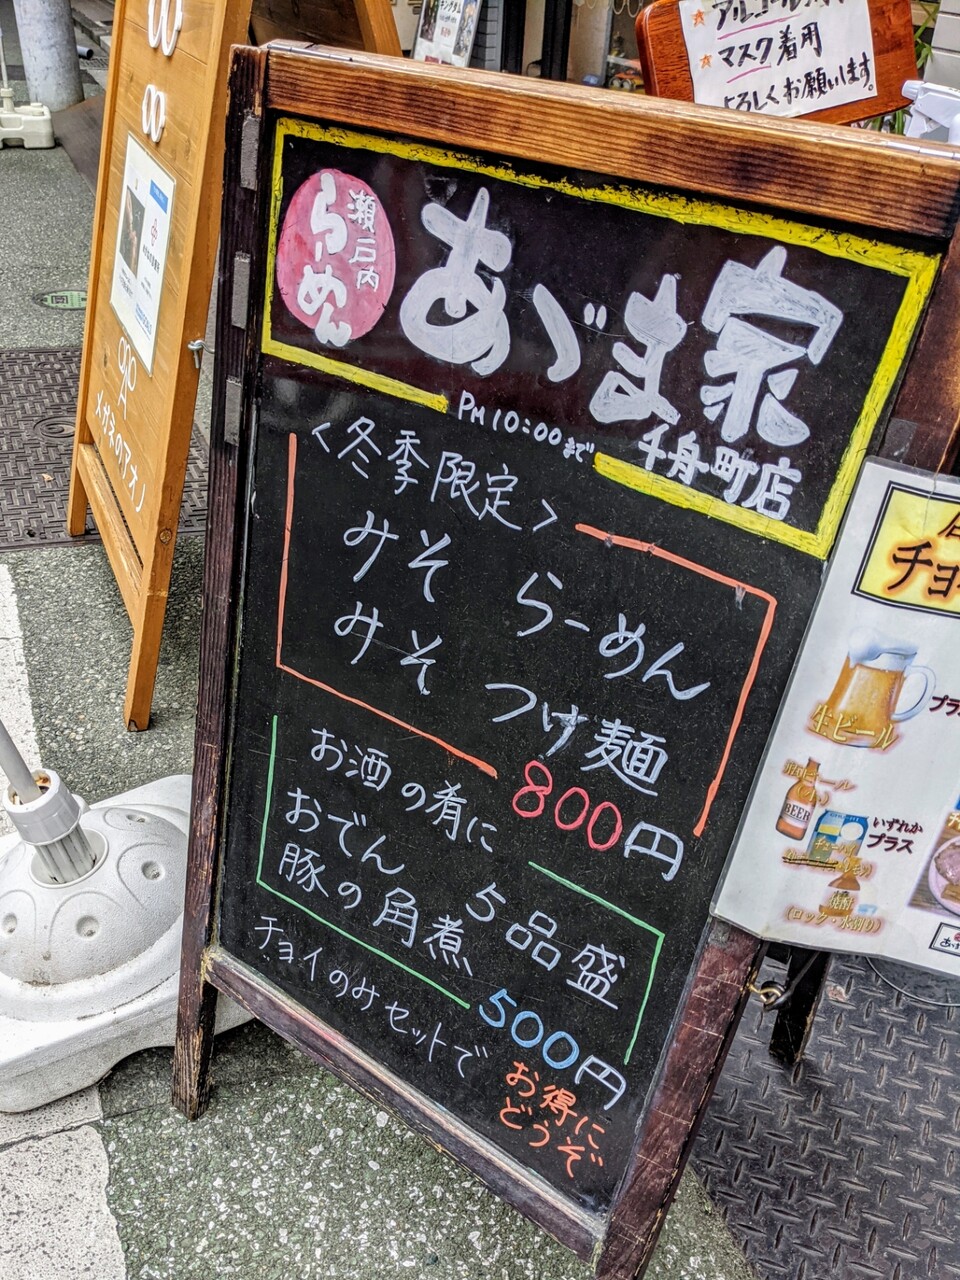 アルコール消
マスク着用
よろしくお願いします。
瀬戸内
らーめん
あづま家
PM10:00まで
千舟町店
<冬季限定>
みそ らーめん
みそ つけ麺
800円
お酒の肴に
おでん 5品盛
豚の角煮 500円
チョイのみセットで
お得に
どうぞ
メガネのアオノ
チョイ
生ビール
プラス
BEER
いずれか
プラス
焼酎
(ロック・水割り)